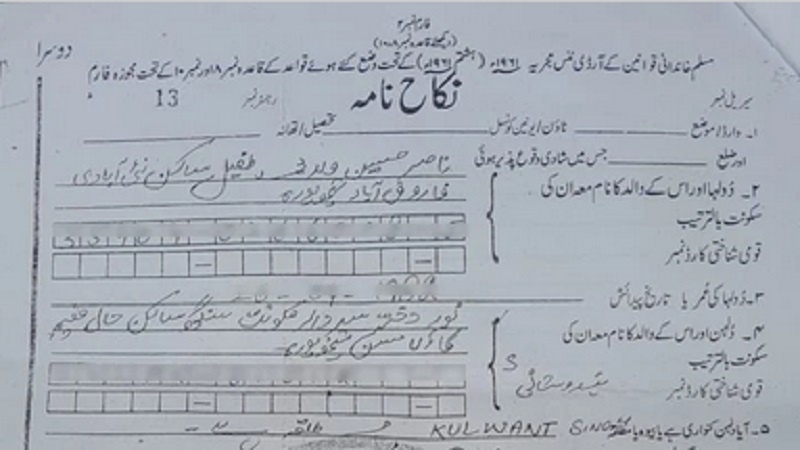 فارم نمبر ۲
دوسرا
(دیکھئے قاعدہ نمبر ۸،۱۰)
مسلم خاندانی قوانین کے آرڈی ننس مجریہ ۱۹۶۱ء (ہشتم ۱۹۶۱ء) کے تحت وضع کئے ہوئے قواعد کے قاعدہ نمبر ۸ اور نمبر ۱۰ کے تحت مجوزہ فارم
سیریل نمبر نکاح نامہ رجسٹر نمبر 13
۱۔ وارڈ / موضع ٹاؤن / یونین کونسل تحصیل / تھانہ
اور ضلع جس میں شادی وقوع پذیر ہوئی ناصر حسین ولد طفیل ساکن نئی آبادی
۲۔ دُولہا اور اس کے والد کا نام معہ ان کی فاروق آباد شیخوپورہ
سکونت بالترتیب
قومی شناختی کارڈ نمبر
۳۔ دُولہا کی عمر یا تاریخ پیدائش
۴۔ دُلہن اور اس کے والد کا نام معہ ان کی دختر سردار سنگھ ساکن حال مقیم
سکونت بالترتیب شیخوپورہ
قومی شناختی کارڈ نمبر
۵۔ آیا دلہن کنواری ہے یا بیوہ یا مطلقہ KULWANT SINGH